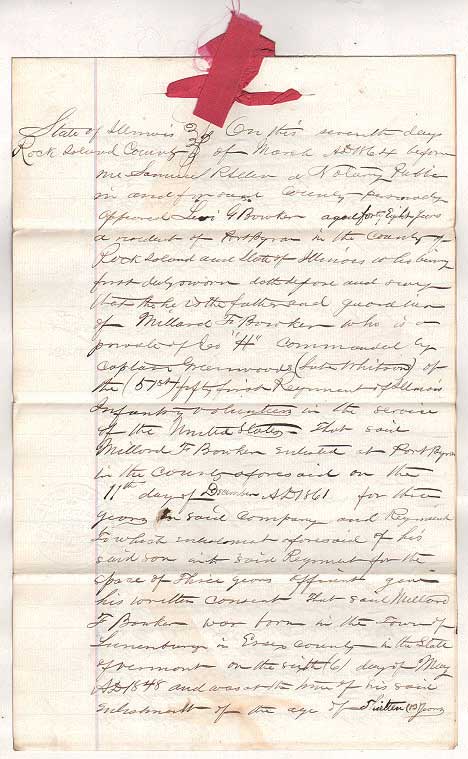 State of Illinois } On this seventh day
Rock Island County } of March AD 1864 before
me Samuel R Allen a Notary Public
in and for said County personally
appeared Levi G Bowker aged forty Eight years
a resident of Port Byron in the County of
Rock Island and State of Illinois who being
first duly sworn doth depose and say
that he is the father and guardian
of Millard F Bowker who is a
private of Co "H" commanded by
Captain Greenwood (late Whitson) of
the (51st) fifty first Regiment of Illinois
Infantry Volunteers in the service
of the United States - that said
Millard F Bowker enlisted at Port Byron
in the County aforesaid on the
11th day of December AD 1861 for three
years in said Company and Regiment
To which enrolment aforesaid of his
said son with said Regiment for the
space of three years affiant gave
his written consent That said Millard
F Bowker was born in the Town of
Lunenburg in Essex County in the State
of Vermont on the sixth (6) day of May
AD 1848 and was at the time of his said
enrolment of the age of thirteen (13) years